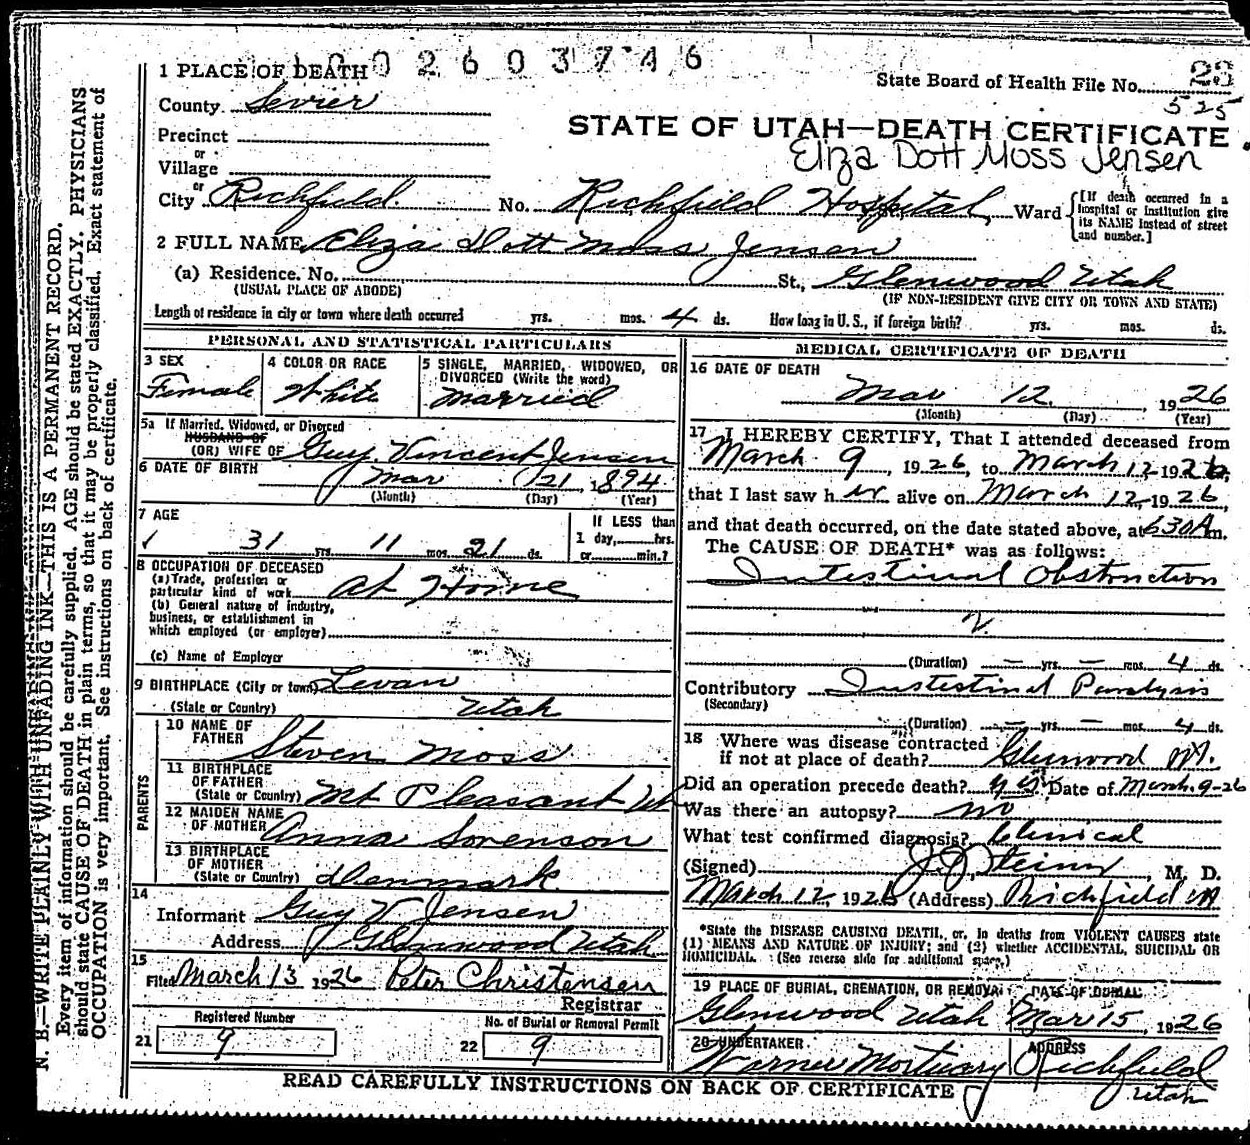 1 PLACE OF DEATH 0 0 2 6 0 3 7 4 6
State Board of Health File No. 23
525
County Sevier
STATE OF UTAH—DEATH CERTIFICATE
Eliza Dott Moss Jensen
Precinct
or
Village
or
City Richfield. No. Richfield Hospital Ward [If death occurred in a hospital or institution give its NAME instead of street and number.]
2 FULL NAME Eliza Dott Moss Jensen
(a) Residence. No. St., Glenwood Utah
(USUAL PLACE OF ABODE) (IF NON-RESIDENT GIVE CITY OR TOWN AND STATE)
Length of residence in city or town where death occurred yrs. mos. 4 ds. How long in U. S., if foreign birth? yrs. mos. ds.
PERSONAL AND STATISTICAL PARTICULARS
3 SEX
Female
4 COLOR OR RACE
White
5 SINGLE, MARRIED, WIDOWED, OR
DIVORCED (Write the word)
Married
5a If Married, Widowed, or Divorced
HUSBAND OF
(OR) WIFE OF Guy Vincent Jensen
6 DATE OF BIRTH
Mar 21 1894
(Month) (Day) (Year)
7 AGE
31 yrs. 11 mos. 21 ds.
If LESS than
1 day, hrs.
or min.?
8 OCCUPATION OF DECEASED
(a) Trade, profession or
particular kind of work at Home
(b) General nature of industry,
business, or establishment in
which employed (or employer)
(c) Name of Employer
9 BIRTHPLACE (City or town) Levan
(State or Country) Utah
PARENTS
10 NAME OF
FATHER Steven Moss
11 BIRTHPLACE
OF FATHER
(State or Country) Mt Pleasant Ut
12 MAIDEN NAME
OF MOTHER Anna Sorenson
13 BIRTHPLACE
OF MOTHER
(State or Country) Denmark
14
Informant Guy V Jensen
Address Glenwood Utah
15
Filed March 13 1926 Peter Christensen
Registrar
Registered Number
21 9
No. of Burial or Removal Permit
22 9
MEDICAL CERTIFICATE OF DEATH
16 DATE OF DEATH
Mar 12. , 1926
(Month) (Day) (Year)
17 I HEREBY CERTIFY, That I attended deceased from
March 9 , 1926, to March 12 1926,
that I last saw her alive on March 12, 1926,
and that death occurred, on the date stated above, at 630 A m.
The CAUSE OF DEATH* was as follows:
Intestinal Obstruction
(Duration) – yrs. – mos. 4 ds.
Contributory Intestinal Paralysis
(Secondary)
(Duration) – yrs. – mos. 4 ds.
18 Where was disease contracted
if not at place of death? Glenwood Ut.
Did an operation precede death? yes Date of March 9-26
Was there an autopsy? no
What test confirmed diagnosis? Clinical
(Signed) , M. D.
March 12, 1926 (Address) Richfield Ut
*State the DISEASE CAUSING DEATH, or, in deaths from VIOLENT CAUSES state
(1) MEANS AND NATURE OF INJURY; and (2) whether ACCIDENTAL, SUICIDAL OR
HOMICIDAL. (See reverse side for additional space.)
19 PLACE OF BURIAL, CREMATION, OR REMOVAL DATE OF BURIAL
Glenwood Utah Mar 15 , 1926
20 UNDERTAKER ADDRESS
Warner Mortuary Richfield
Utah
READ CAREFULLY INSTRUCTIONS ON BACK OF CERTIFICATE
N. B.—WRITE PLAINLY WITH UNFADING INK—THIS IS A PERMANENT RECORD.
Every item of information should be carefully supplied. AGE should be stated EXACTLY. PHYSICIANS
should state CAUSE OF DEATH in plain terms, so that it may be properly classified. Exact statement of
OCCUPATION is very important. See instructions on back of certificate.